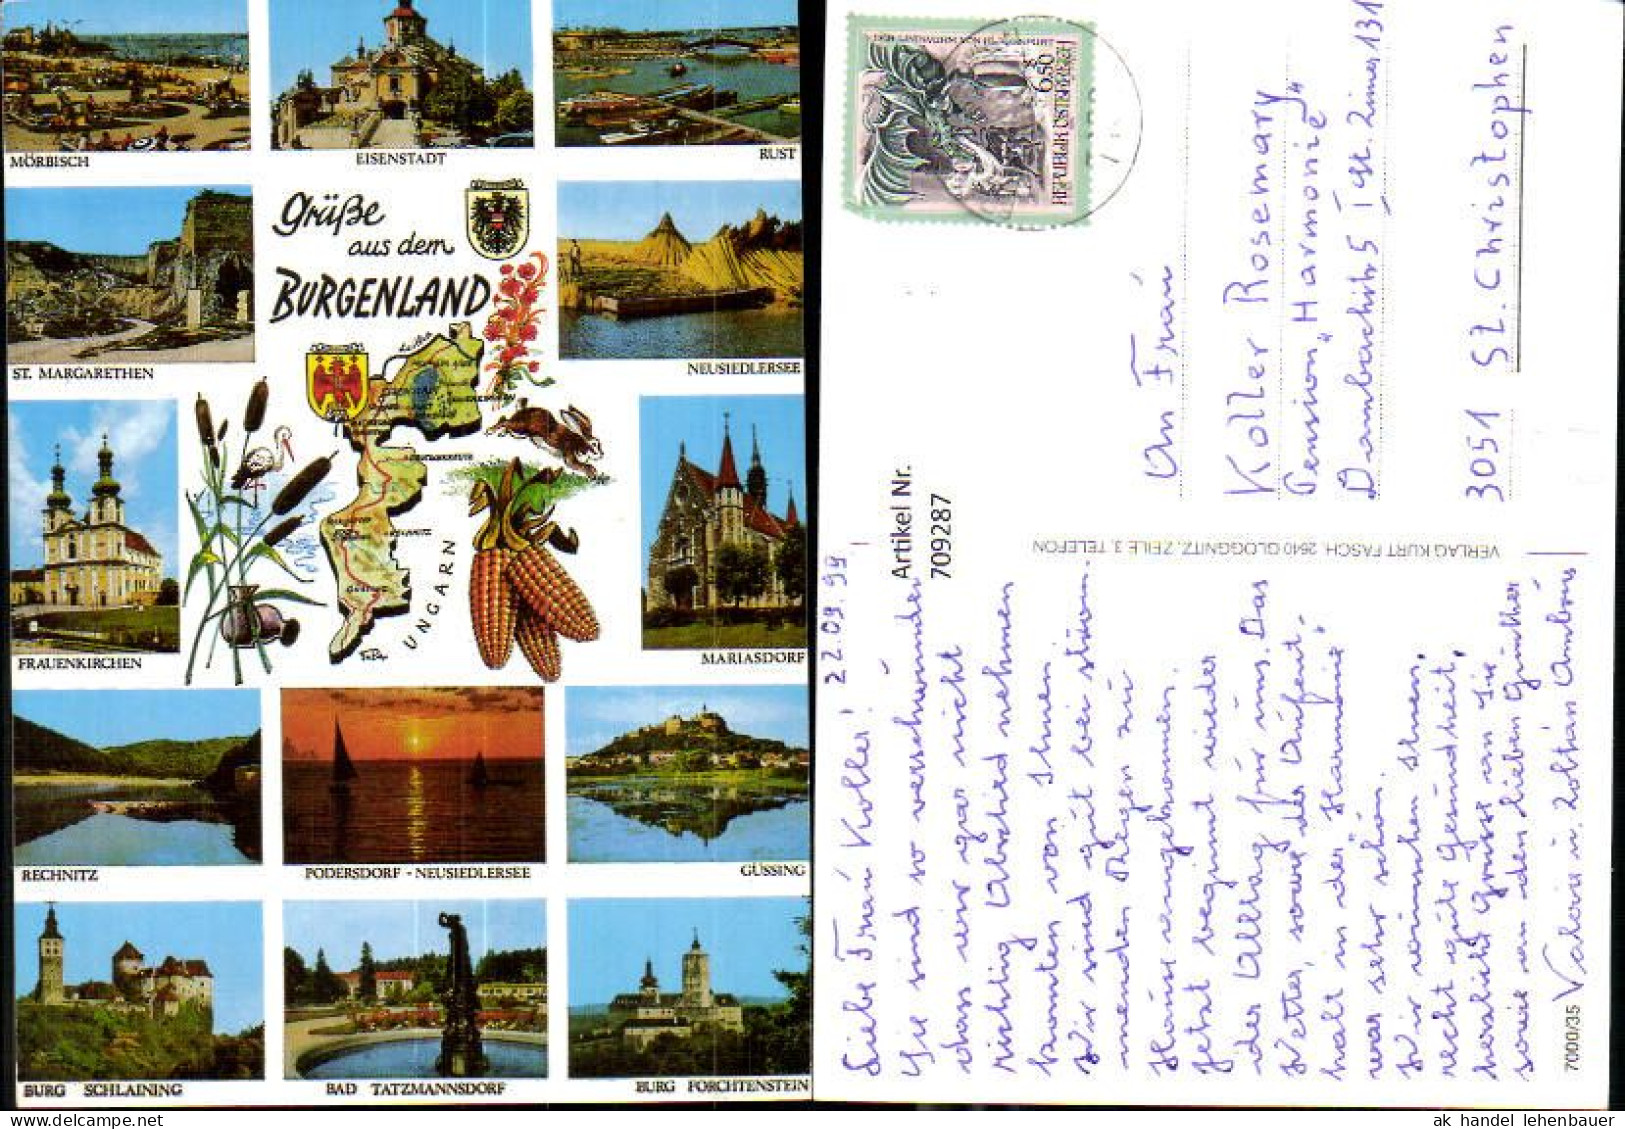 MÖRBISCH
EISENSTADT
RUST
Grüße
aus dem
BURGENLAND
ST. MARGARETHEN
NEUSIEDLERSEE
FRAUENKIRCHEN
UNGARN
MARIASDORF
RECHNITZ
PODERSDORF - NEUSIEDLERSEE
GÜSSING
BURG SCHLAINING
BAD TATZMANNSDORF
BURG FORCHTENSTEIN
REPUBLIK ÖSTERREICH
S 6.50
An Fraú
Koller Rosemary
Pension „Harmonie"
3051 St. Christophen
VERLAG KURT FASCH, 2640 GLOGGNITZ, ZEILE 3, TELEFON
Artikel Nr.
709287
22.09.99
Liebe Fraú Koller!
Sie sind so verschwunden
dass wir gar nicht
richtig Abschied nehmen
konnten von Ihnen
Wir sind gút bei ström.
menden Regen zú
Haúse angekommen.
Jetzt beginnt wieder
der Alltag für úns. Das
Wetter, sowie der Aúfent-
halt in der „Harmonie"
war sehr schön.
Wir wünschen Ihnen,
recht gúte Gesúndheit,
herzlichst Grüsse an Sie
sowie an den lieben Günther
Valerie ú. Zoltán Ambrús
7000/35
ak handel lehenbauer